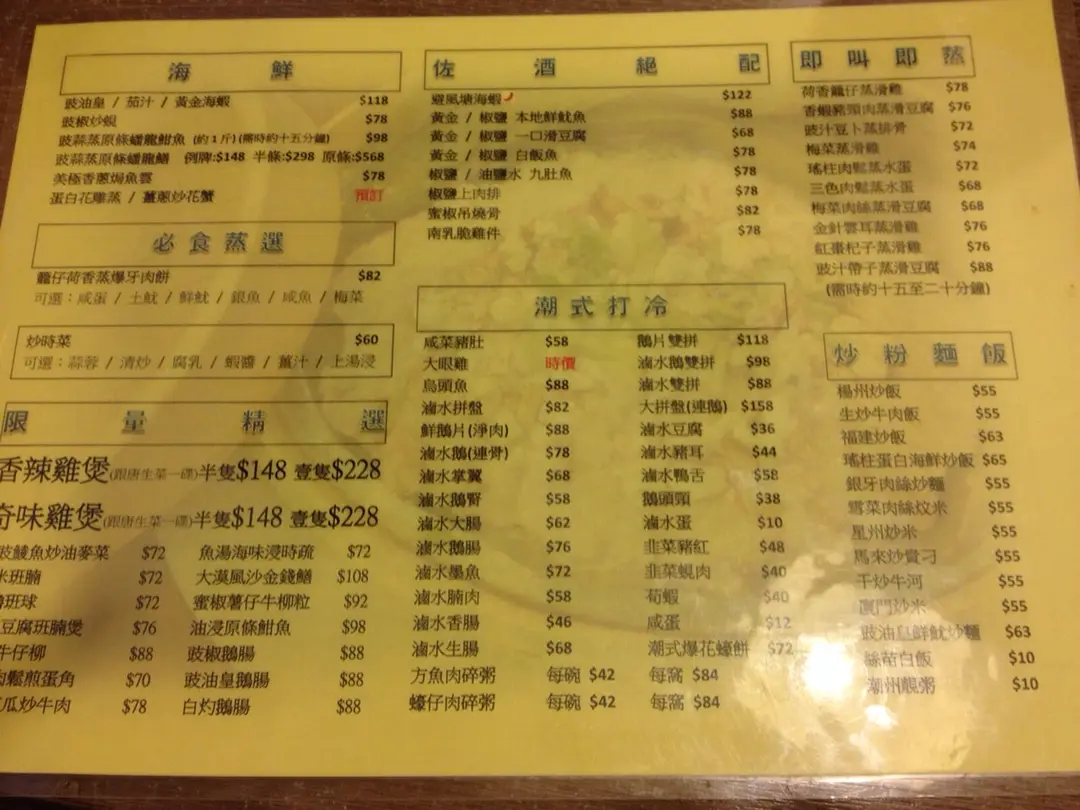 海鮮
豉油皇 / 茄汁 / 黃金海蝦 $118
豉椒炒蜆 $78
豉蒜蒸原條蟠龍鮏魚 (約1斤)(需時約十五分鐘) $98
豉蒜蒸原條蟠龍鱔 例牌:$148 半條:$298 原條:$568
美極香蔥焗魚雲 $78
蛋白花雕蒸 / 薑蔥炒花蟹 預訂
必食蒸選
籠仔荷香蒸爆牙肉餅 $82
可選：咸蛋 / 土魷 / 鮮魷 / 銀魚 / 咸魚 / 梅菜
炒時菜 $60
可選：蒜蓉 / 清炒 / 腐乳 / 蝦醬 / 薑汁 / 上湯浸
限量精選
香辣雞煲(跟唐生菜一碟)半隻$148 壹隻$228
奇味雞煲(跟唐生菜一碟)半隻$148 壹隻$228
豉鯪魚炒油麥菜 $72 魚湯海味浸時疏 $72
班腩 $72 大漠風沙金錢鱔 $108
班球 $72 蜜椒薯仔牛柳粒 $92
豆腐班腩煲 $76 油浸原條鮏魚 $98
牛仔柳 $88 豉椒鵝腸 $88
鬆煎蛋角 $70 豉油皇鵝腸 $88
瓜炒牛肉 $78 白灼鵝腸 $88
佐酒絕配
避風塘海蝦 $122
黃金 / 椒鹽 本地鮮魷魚 $88
黃金 / 椒鹽 一口滑豆腐 $68
黃金 / 椒鹽 白飯魚 $78
椒鹽 / 油鹽水 九肚魚 $78
椒鹽上肉排 $78
蜜椒吊燒骨 $82
南乳脆雞件 $78
潮式打冷
咸菜豬肚 $58 鵝片雙拼 $118
大眼雞 時價 滷水鵝雙拼 $98
烏頭魚 $88 滷水雙拼 $88
滷水拼盤 $82 大拼盤(連鵝) $158
鮮鵝片(淨肉) $88 滷水豆腐 $36
滷水鵝(連骨) $78 滷水豬耳 $44
滷水掌翼 $68 滷水鴨舌 $58
滷水鵝腎 $58 鵝頭頸 $38
滷水大腸 $62 滷水蛋 $10
滷水鵝腸 $76 韭菜豬紅 $48
滷水墨魚 $72 韭菜蜆肉 $40
滷水腩肉 $58 荀蝦 $40
滷水香腸 $46 咸蛋 $12
滷水生腸 $68 潮式爆花蠔餅 $72
方魚肉碎粥 每碗 $42 每窩 $84
蠔仔肉碎粥 每碗 $42 每窩 $84
即叫即蒸
荷香籠仔蒸滑雞 $78
香蝦豬頸肉蒸滑豆腐 $76
豉汁豆卜蒸排骨 $72
梅菜蒸滑雞 $74
瑤柱肉鬆蒸水蛋 $72
三色肉鬆蒸水蛋 $68
梅菜肉絲蒸滑豆腐 $68
金針雲耳蒸滑雞 $76
紅棗杞子蒸滑雞 $76
豉汁帶子蒸滑豆腐 $88
(需時約十五至二十分鐘)
炒粉麵飯
楊州炒飯 $55
生炒牛肉飯 $55
福建炒飯 $63
瑤柱蛋白海鮮炒飯 $65
銀牙肉絲炒麵 $55
雪菜肉絲炆米 $55
星州炒米 $55
馬來炒貴刁 $55
干炒牛河 $55
廈門炒米 $55
豉油皇鮮魷炒麵 $63
絲苗白飯 $10
潮州靚粥 $10